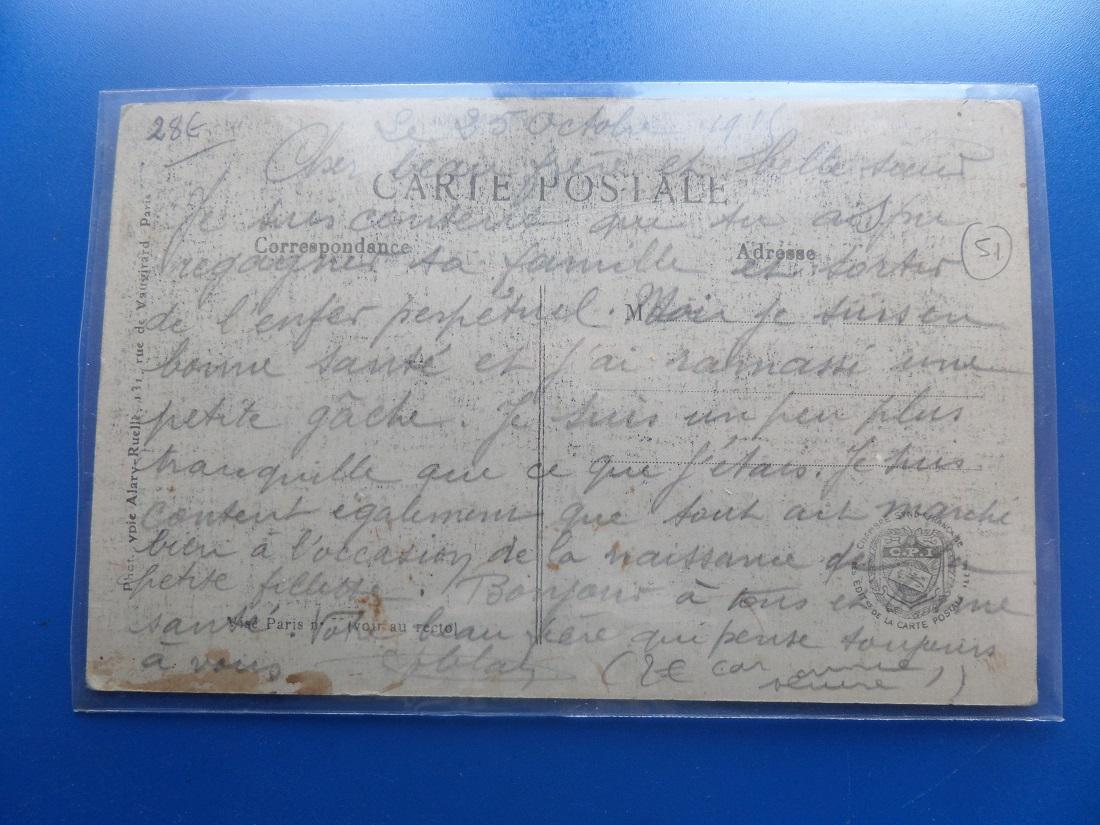 28€
Le 25 Octobre 191
Cher beau frère et belle sœur
CARTE POSTALE
Je suis content que tu ais pu
Correspondance
Adresse
51
regagner ta famille et sortir
de l'enfer perpétuel. Moi je suis en
M
bonne santé et j'ai ramassi une
petite gâche. Je suis un peu plus
tranquille que ce que j'étais. Je suis
content également que tout ait marché
bien à l'occasion de la naissance de
petite fillette. Bonjour à tous et bonne
santé. Votre beau frère qui pense toujours
Visé Paris n° (voir au recto)
à vous
(2€ car
Phototypie Alary-Ruelle, 131, rue de Vaugirard, Paris
CHAMBRE SYND. FRANÇAISE
C.P.I
EDIT. DE LA CARTE POSTALE ILL.